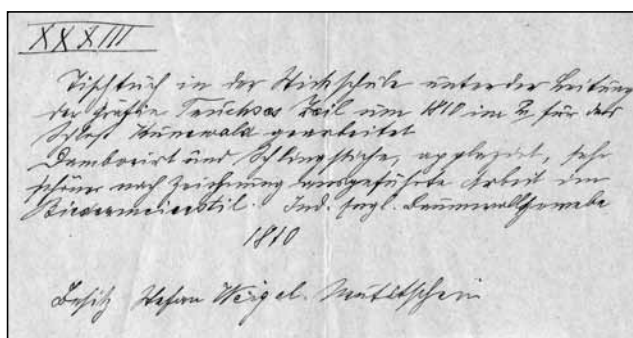 XXXIII
Tischtuch in der Stickschule unter der Leitung
der Gräfin Truchses Zeil um 1810 im für das
Schloß Kunewald gearbeitet
Tamborirt und Schlingstiche, appliziert, sehr
schöne nach Zeichnung ausgeführte Arbeit im
Biedermeierstil. Ind. Engl. Baumwollgewebe
1810
Besitz Stefan Weigel. Neutitschein